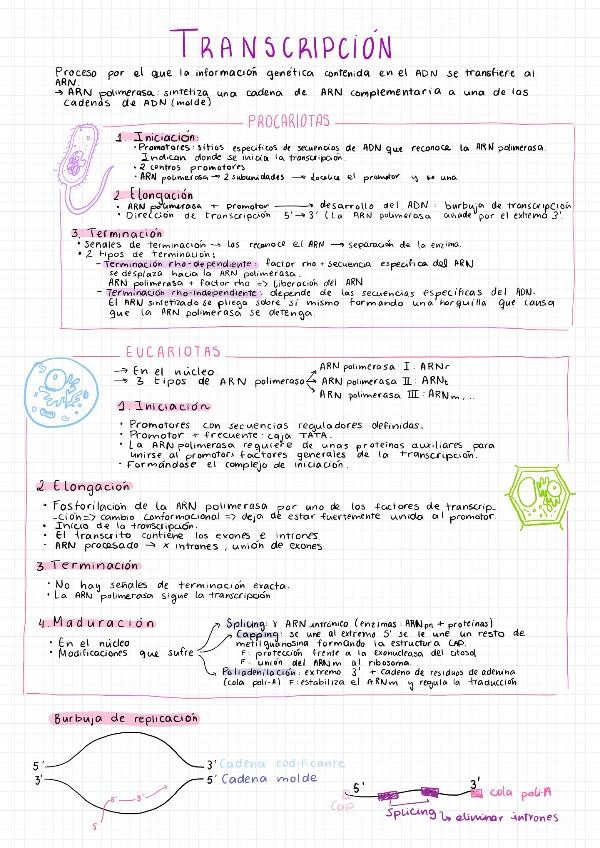 TRANSCRIPCIÓN
Proceso por el que la información genética contenida en el ADN se transfiere al
ARN.
→ ARN polimerasa: sintetiza una cadena de ARN complementaria a una de las
cadenas de ADN (molde)
PROCARIOTAS
1. Iniciación:
• Promotores: sitios específicos de secuencias de ADN que reconoce la ARN polimerasa.
Indican donde se inicia la transcripción.
• 2 centros promotores
• ARN polimerasa → 2 subunidades → localice el promotor y se una
2. Elongación
• ARN polimerasa + promotor → desarrollo del ADN: burbuja de transcripción
• Dirección de transcripción 5' → 3' (La ARN polimerasa añade por el extremo 3'
3. Terminación
• Señales de terminación → las reconoce el ARN → separación de la enzima.
• 2 tipos de terminación:
- Terminación rho-dependiente: factor rho + secuencia específica del ARN
se desplaza hacia la ARN polimerasa.
ARN polimerasa + factor rho => Liberación del ARN
- Terminación rho-independiente: depende de las secuencias específicas del ADN.
El ARN sintetizado se pliega sobre sí mismo formando una horquilla que causa
que la ARN polimerasa se detenga.
EUCARIOTAS
→ En el núcleo
→ 3 tipos de ARN polimerasa
ARN polimerasa I: ARNr
ARN polimerasa II: ARNt
ARN polimerasa III: ARNm,...
1. Iniciación
• Promotores con secuencias reguladores definidas.
• Promotor + frecuente: caja TATA.
• La ARN polimerasa requiere de unas proteínas auxiliares para
unirse al promotor: factores generales de la transcripción.
• Formándose el complejo de iniciación.
2. Elongación
• Fosforilación de la ARN polimerasa por uno de los factores de transcrip-
-ción => cambio conformacional => deja de estar fuertemente unida al promotor.
• Inicio de la transcripción.
• El transcrito contiene los exones e intrones.
• ARN procesado → x intrones, unión de exones
3. Terminación
• No hay señales de terminación exacta.
• La ARN polimerasa sigue la transcripción
4. Maduración
• En el núcleo
• Modificaciones que sufre
Splicing: x ARN intrónico (enzimas: ARNpn + proteínas)
Capping: se une al extremo 5' se le une un resto de
metilguanosina formando la estructura CAP.
F: protección frente a la exonucleasa del citosol
F: unión del ARNm al ribosoma.
Poliadenilación: extremo 3' + cadena de residuos de adenina
(cola poli-A) F: estabiliza el ARNm y regula la traducción
Burbuja de replicación
5' 3' Cadena codificante
3' 5' Cadena molde
5' 6' 3'
5' 3'
Cap cola poli-A
Splicing ↳ eliminar intrones